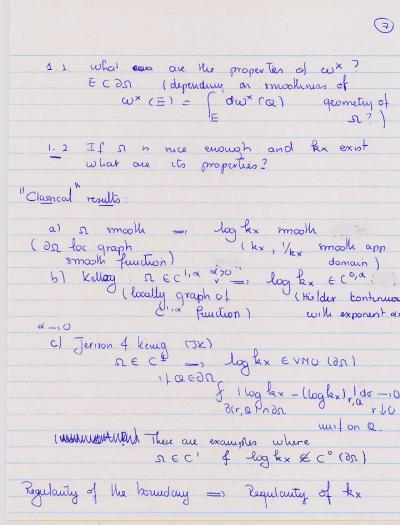 7
1.1 what are the properties of ω^x ?
E ⊂ ∂Ω (depending on smoothness of
ω^x(E) = ∫_E dω^x(Q) geometry of
Ω ? )
1.2 If Ω is nice enough and k_x exist
what are its properties?
"Classical" results:
a) Ω smooth ⟹ log k_x smooth
(∂Ω loc graph (k_x, 1/k_x smooth app
smooth function) domain)
b) Kellog : Ω ∈ C^{1,α} α>0 ⟹ log k_x ∈ C^{0,α}
(locally graph of (Hölder continuous
C^{1,α} function) with exponent α)
α → 0
c) Jerison & Kenig (JK)
Ω ∈ C^1 ⟹ log k_x ∈ VMO (∂Ω)
if Q ∈ ∂Ω
⨍ |log k_x - (log k_x)_{r,Q}| dσ → 0
B(r,Q) ∩ ∂Ω r↓0
unif on Q.
( There are examples where
Ω ∈ C^1 & log k_x ∉ C^0 (∂Ω)
Regularity of the boundary ⟹ Regularity of k_x